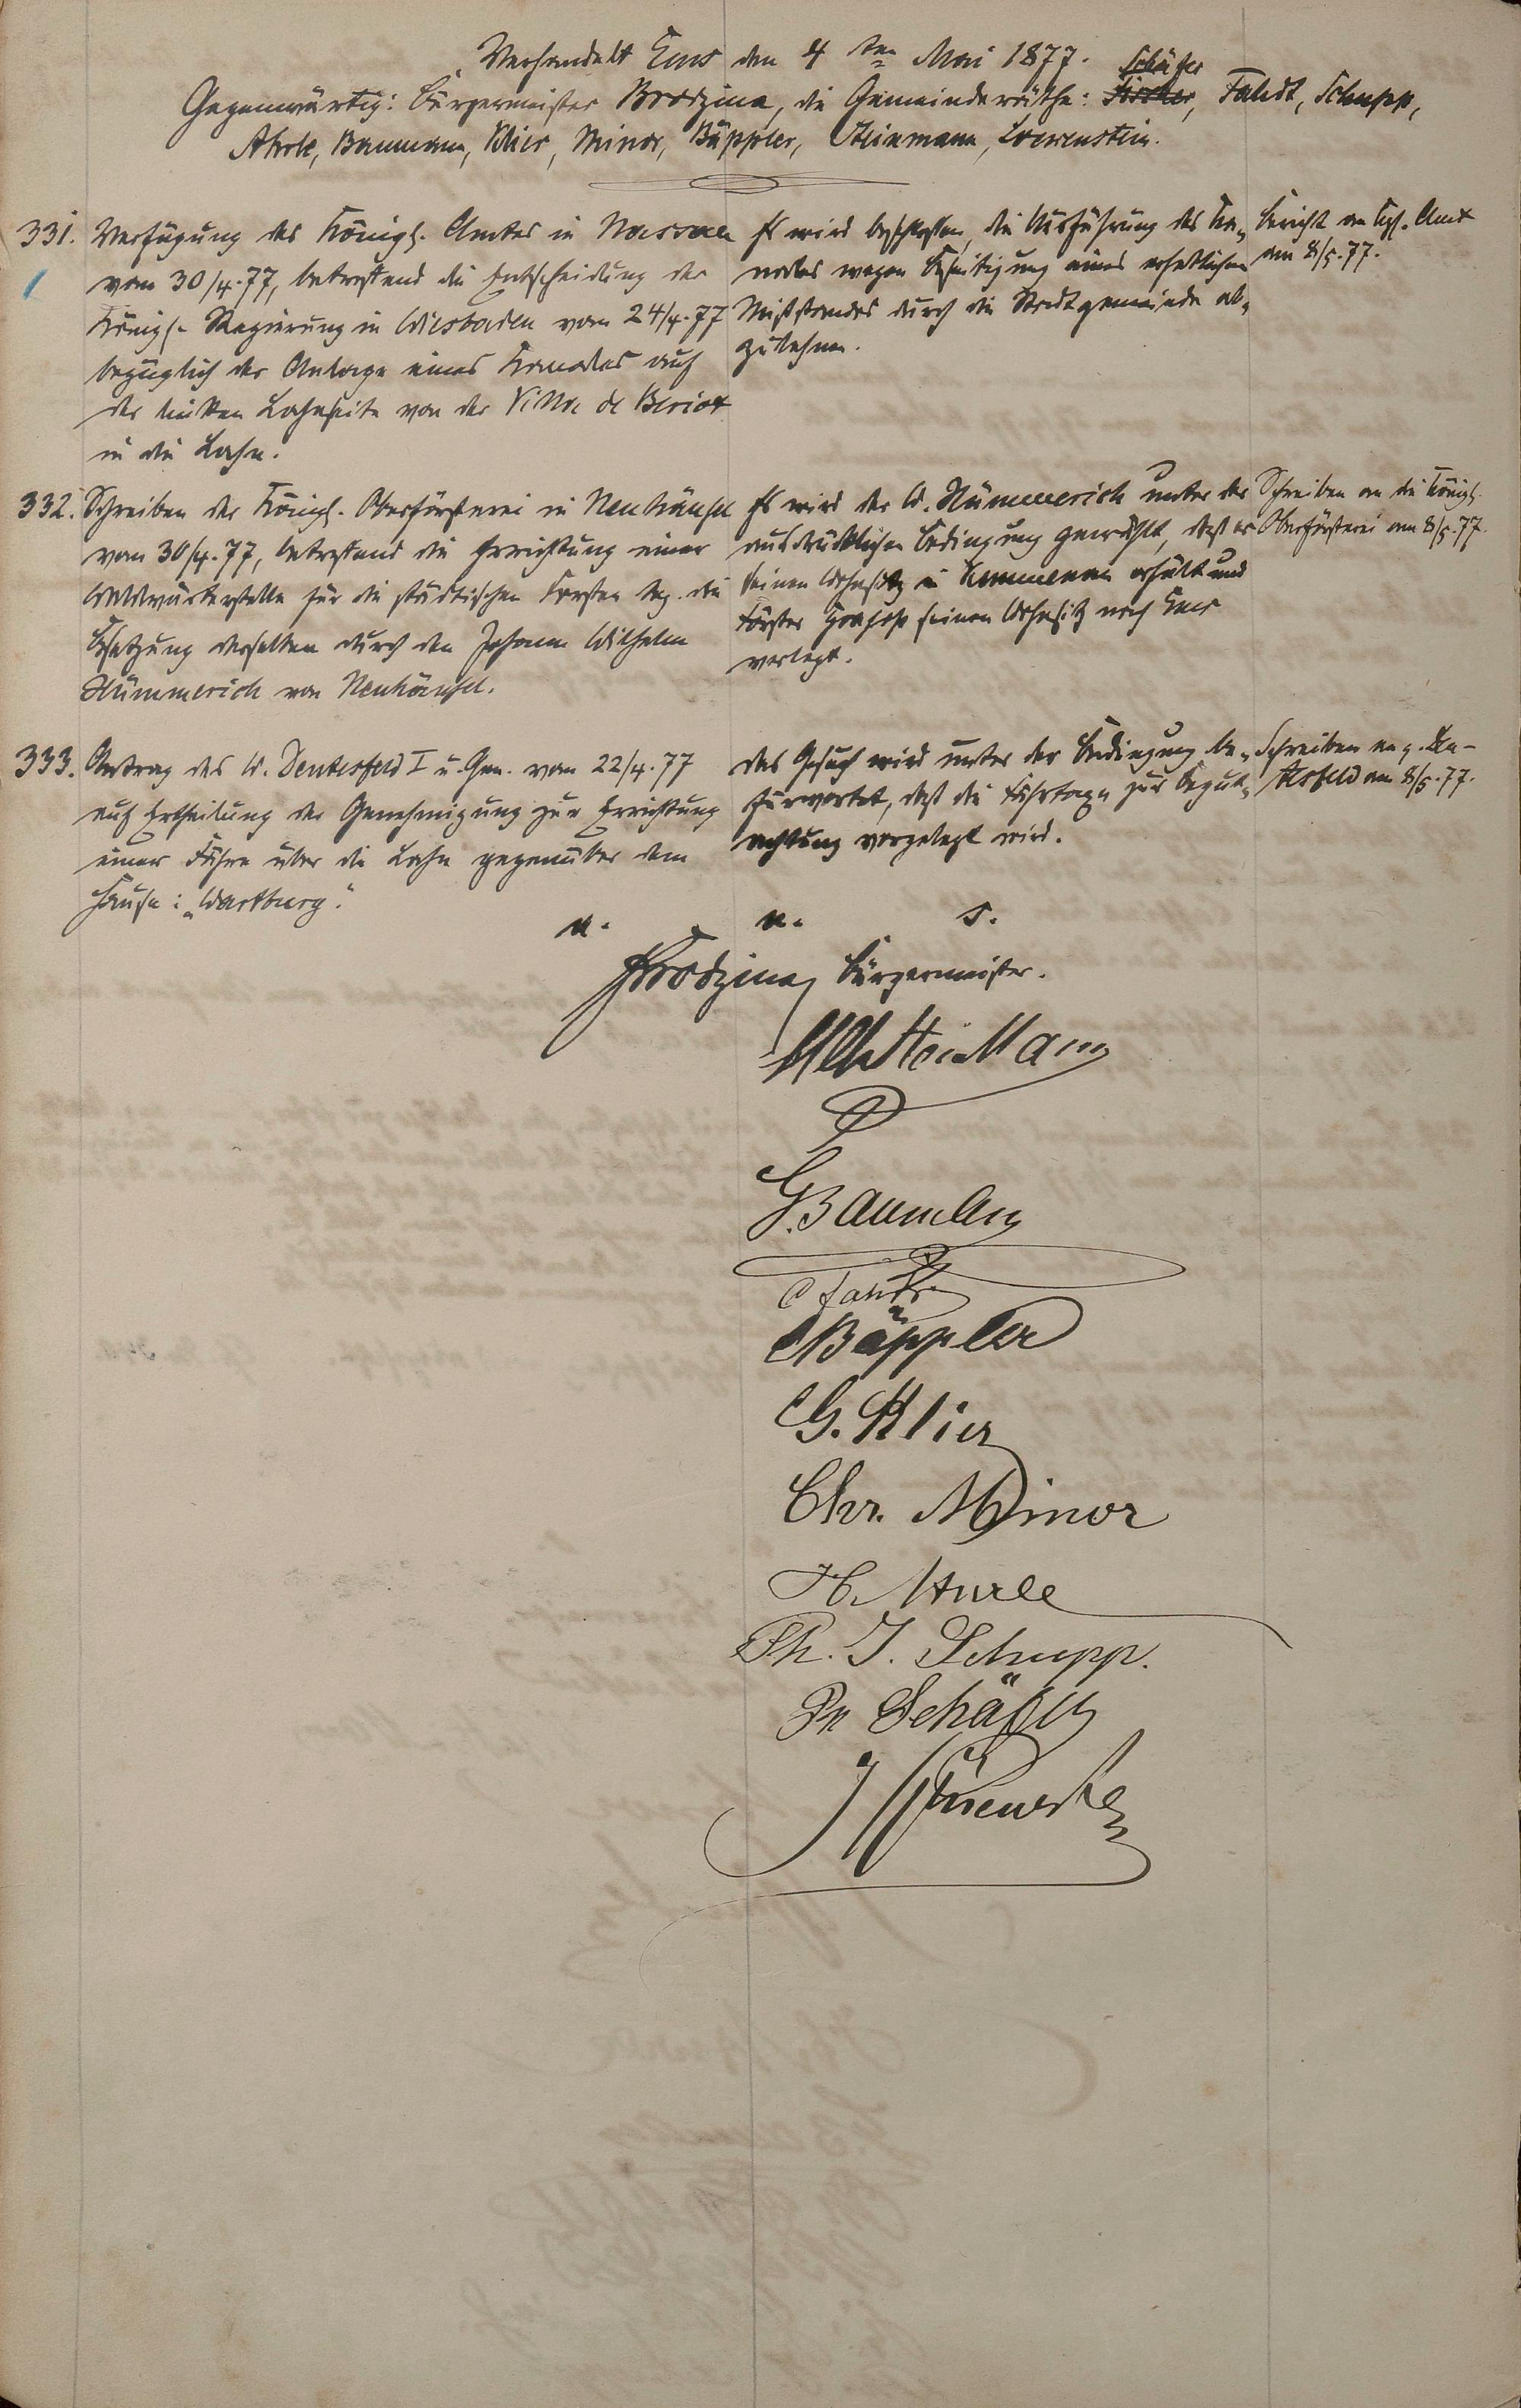 Verhandelt Ems den 4 ten Mai 1877.
Schäffer
Gegenwärtig: Bürgermeister Brodzina, die Gemeinderäthe: Fischer, Faledt, Schupp,
Ahrle, Baumann, Klier, Minor, Bäppler, Steinmann, Loewenstein.
331. Verfügung des Königl. Amtes in Nassau
vom 30/4.77, betreffend die Entscheidung der
Königl. Regierung in Wiesbaden vom 24/4.77
bezüglich der Anlage eines Kanales auf
der linken Lahnseite von der Villa de Beriot
in die Lahn.
Es wird beschlossen, die Ausführung des Ka-
nales wegen Beseitigung eines erheblichen
Mißstandes durch die Stadtgemeinde ab-
zulehnen.
Bericht an Kgl. Amt
am 8/5.77.
332. Schreiben der Königl. Oberförsterei in Neuhäusel
vom 30/4.77, betreffend die Errichtung einer
Waldwärterstelle für die städtischen Forsten bez. die
Besetzung derselben durch den Johann Wilhelm
Hümmerich von Neuhäusel.
Es wird der W. Hümmerich unter der
ausdrücklichen Bedingung gewählt, daß er
seinen Wohnsitz in Kemmenau erhält und
Förster seinen Wohnsitz nach Ems
verlegt.
Schreiben an die Königl.
Oberförsterei am 8/5.77.
333. Antrag des W. Deutesfeld I u. Gen. vom 22/4.77
auf Ertheilung der Genehmigung zur Errichtung
einer Fähre über die Lahn gegenüber dem
Hause: „Wartburg."
Das Gesuch wird unter der Bedingung be-
fürwortet, daß die Fährtaxe zur Begut-
achtung vorgelegt wird.
Schreiben an p. Deu-
tesfeld am 8/5.77.
u. u. s.
Brodzina, Bürgermeister.
Steinmann
G. Baumann
Bäppler
G. Klier
Chr. Minor
H. Ahrle
Ph. J. Schupp.
Pr Schäfer
J Löwenstein